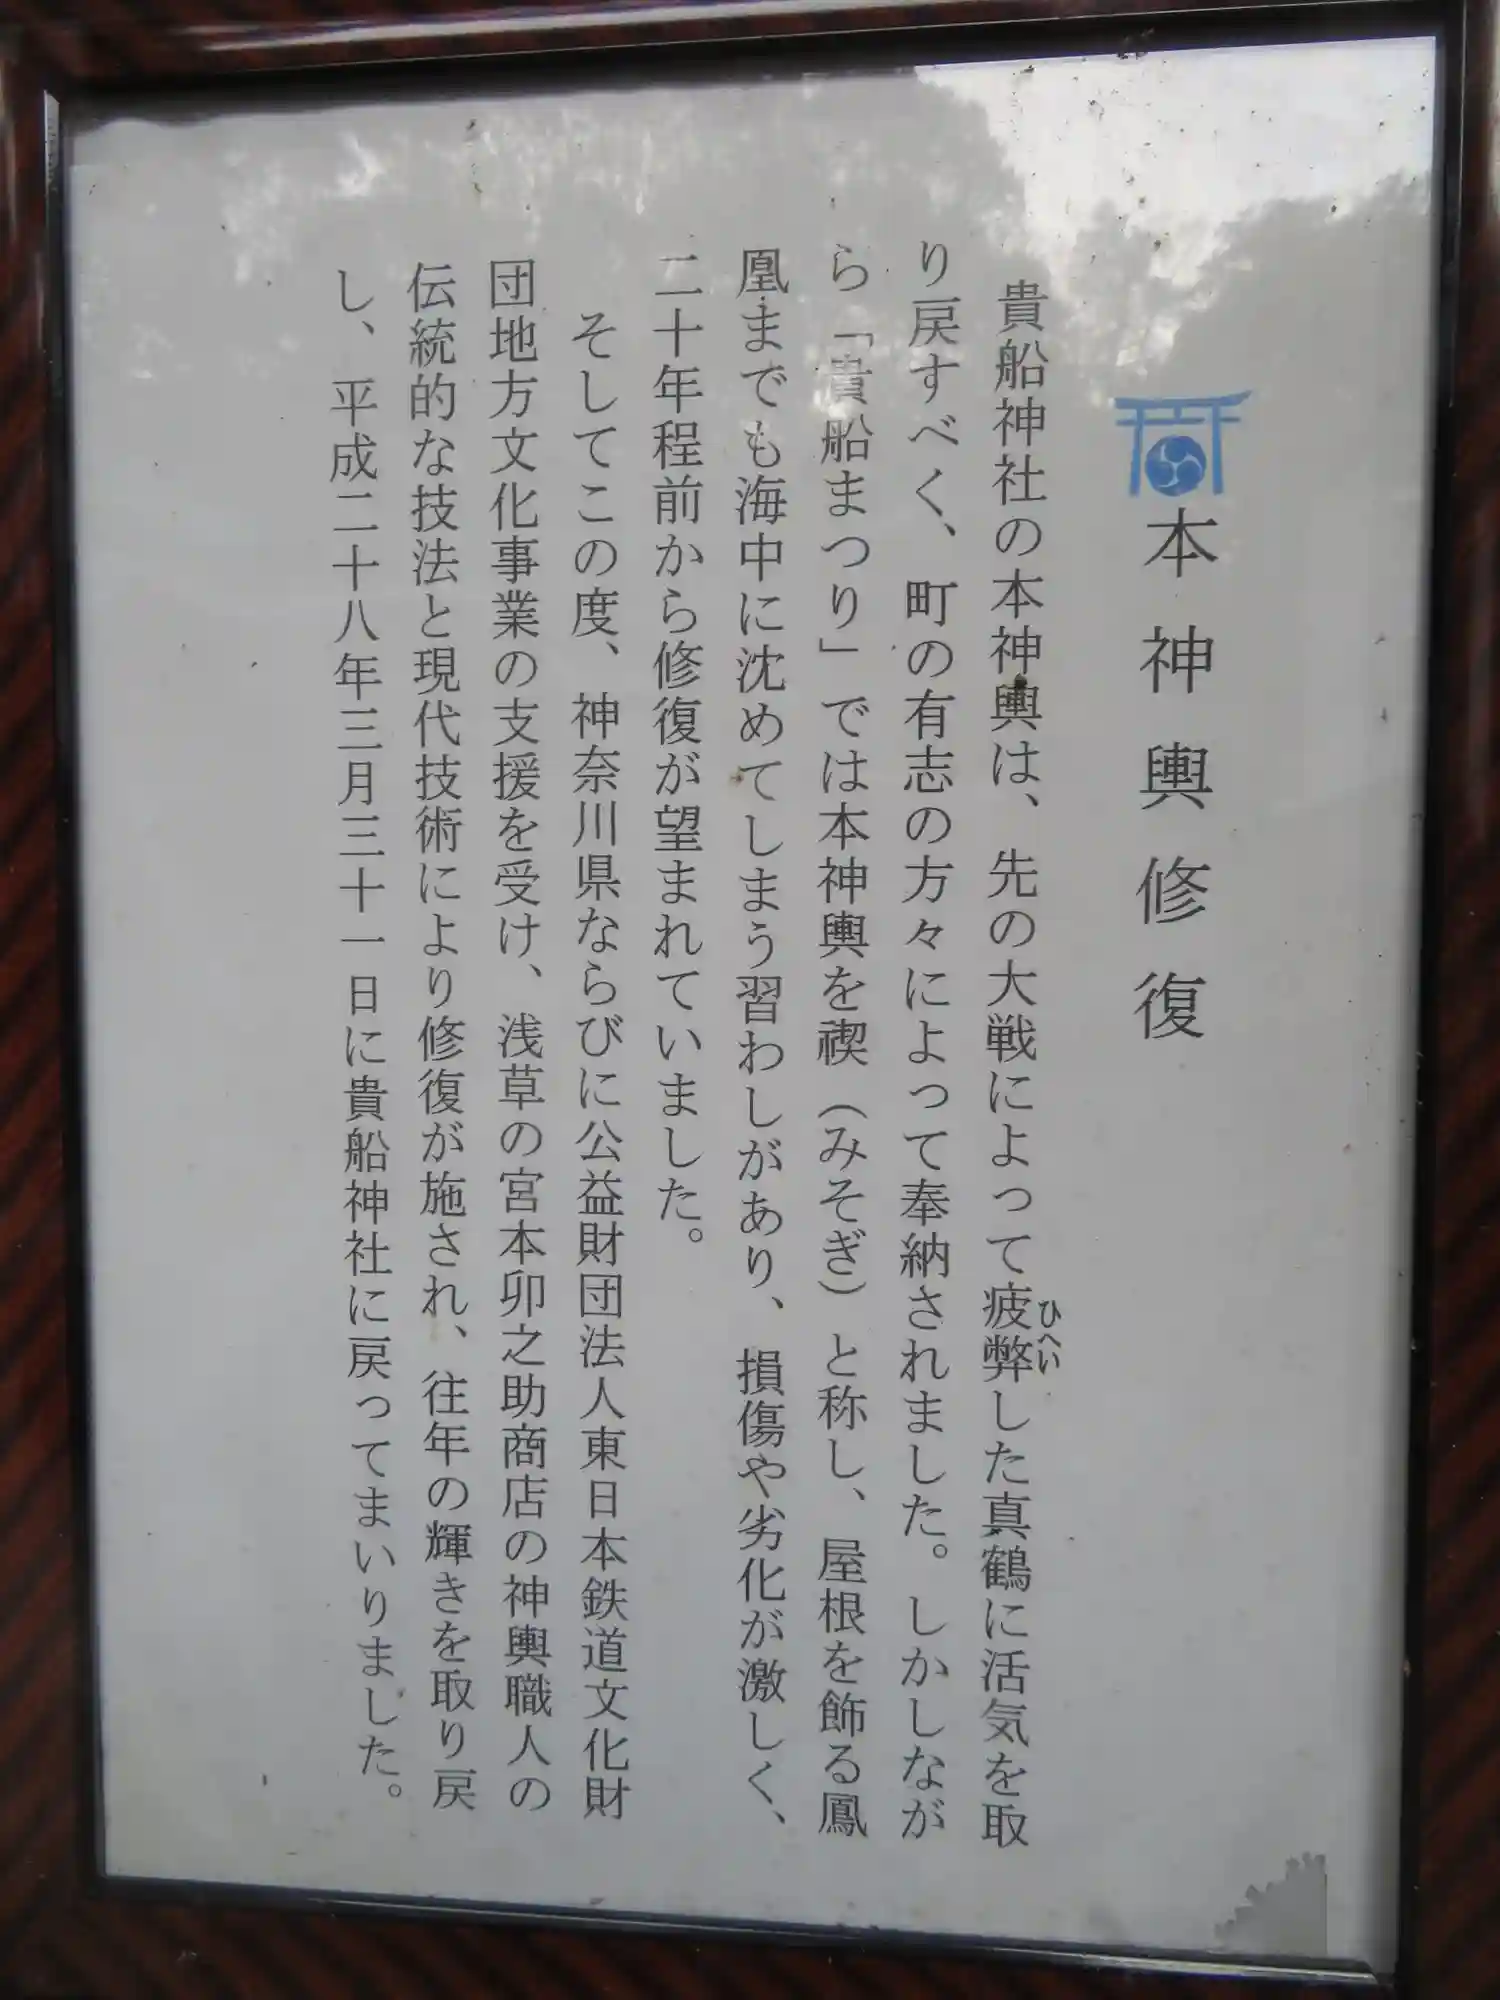 本神輿修復
貴船神社の本神輿は、先の大戦によって疲弊した真鶴に活気を取
ひへい
り戻すべく、町の有志の方々によって奉納されました。しかしなが
ら「貴船まつり」では本神輿を禊(みそぎ)と称し、屋根を飾る鳳
凰までも海中に沈めてしまう習わしがあり、損傷や劣化が激しく、
二十年程前から修復が望まれていました。
そしてこの度、神奈川県ならびに公益財団法人東日本鉄道文化財
団地方文化事業の支援を受け、浅草の宮本卯之助商店の神輿職人の
伝統的な技法と現代技術により修復が施され、往年の輝きを取り戻
し、平成二十八年三月三十一日に貴船神社に戻ってまいりました。